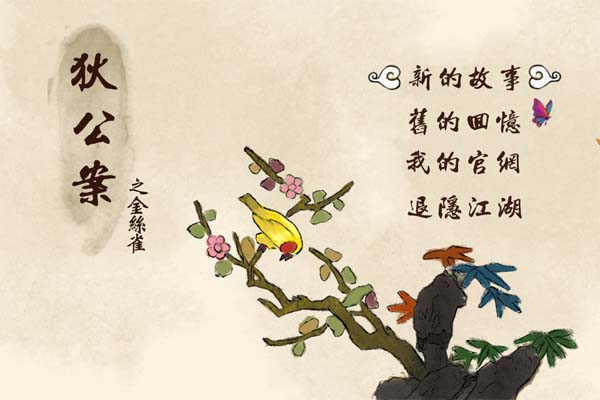 狄公案
之金絲雀
新的故事
舊的回憶
我的官網
退隱江湖